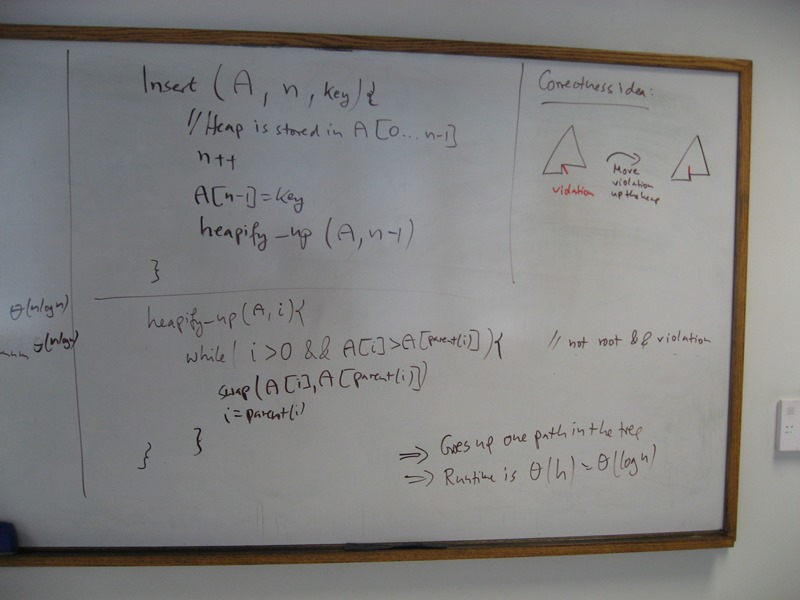 Insert (A, n, key){
//Heap is stored in A[0...n-1]
n++
A[n-1]=key
heapify-up (A, n-1)
}
Correctness idea:
violation
Move
violation
up the heap
θ(nlogn)
θ(nlogn)
heapify-up(A, i){
while( i>0 && A[i]>A[parent(i)]){ // not root && violation
swap(A[i], A[parent(i)])
i=parent(i)
}
}
⇒ Goes up one path in the tree
⇒ Runtime is θ(h) = θ(logn)